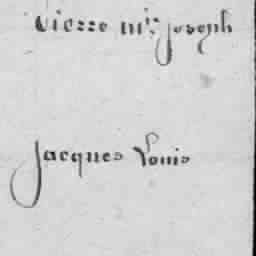 pierre m.ie joseph
Jacques Louis